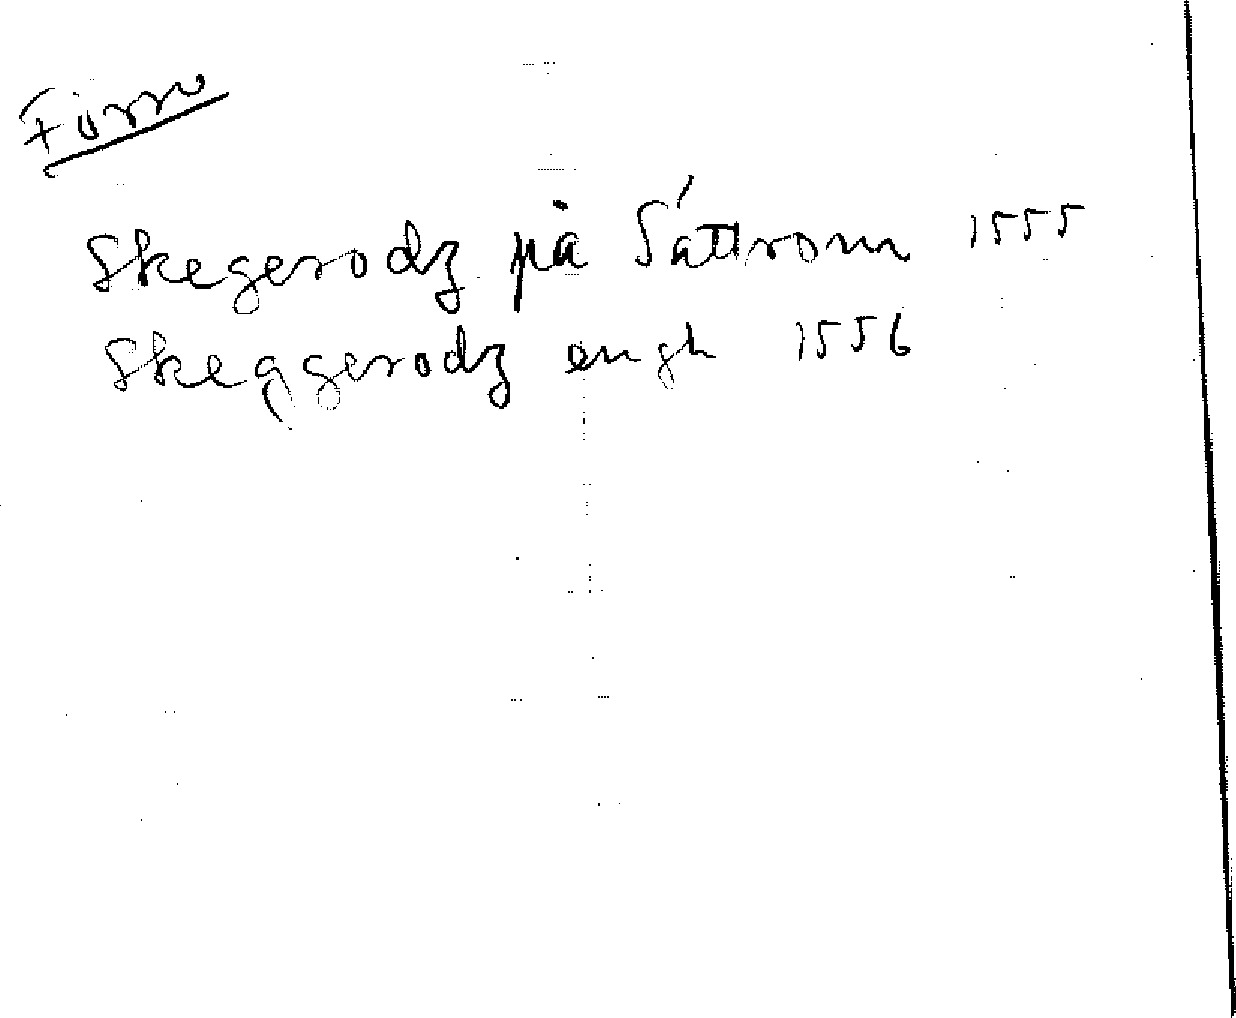 Förro
Skegerodz på Sáttrom 1555
Skeggerodz engh 1556